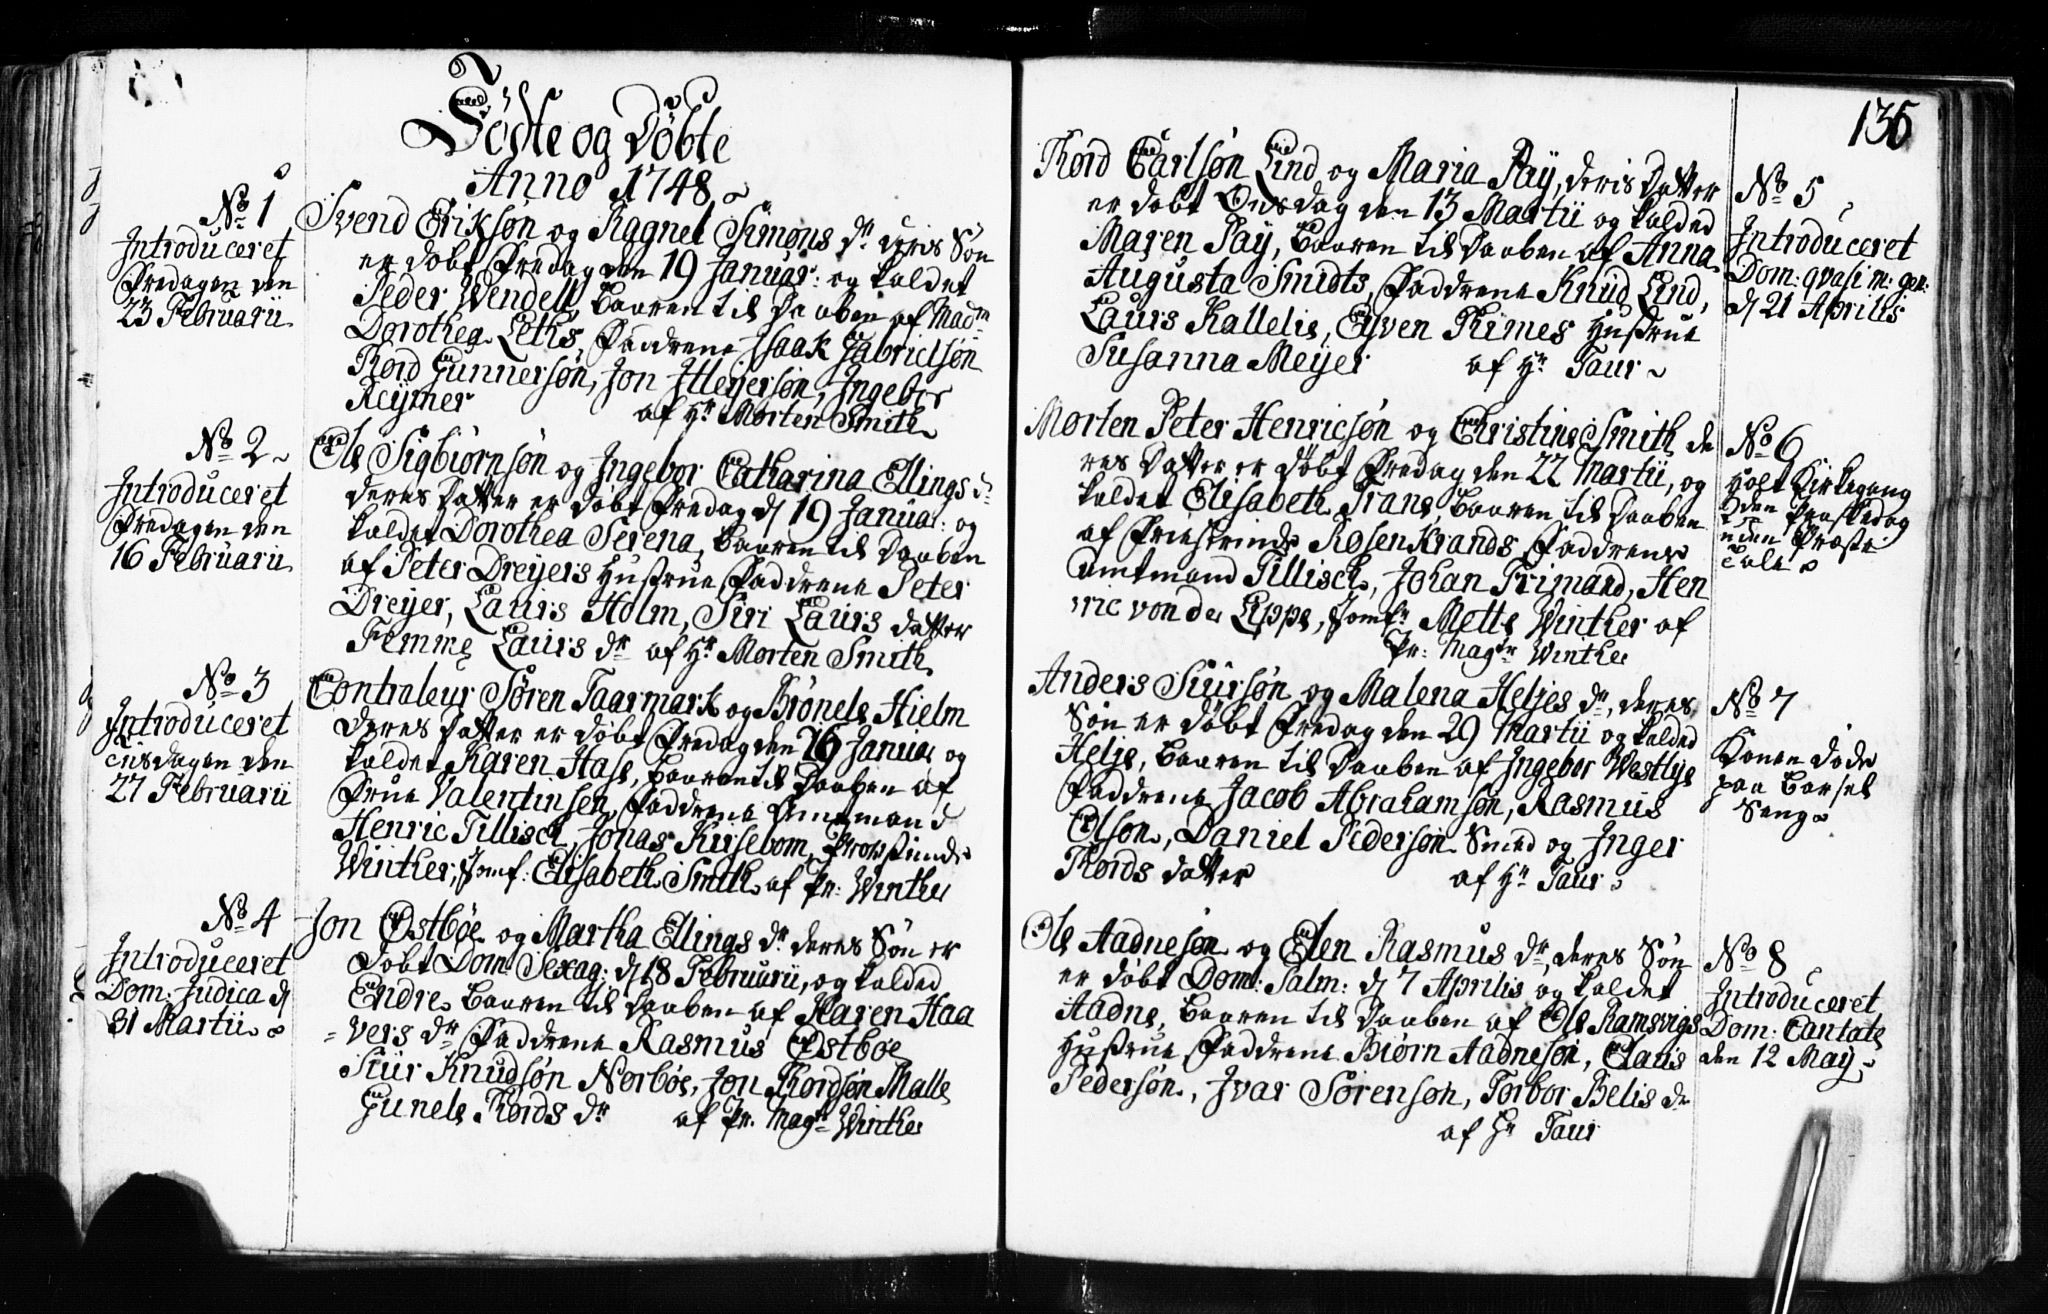 Födte og Döbte
Anno 1748
No 1
Introduceret
Fredagen den
23 Februarii
Svend Eriksøn og Ragnel Simons dr deris Søn
er döbt Fredag den 19 Januar: og kaldet
Peder Wendell, baaren til Daaben af Madm
Dorothea Leths, Faddrene Isaak Gabrielsøn
Thord Gunnersøn, Jon Meyersøn, Ingebor
Reymer af Hr Morten Smith
No 2
Introduceret
Fredagen den
16 Februarii
Ole Sigbiørnsøn og Ingebor Catharina Ellings dr
deres Datter er döbt Fredag d 19 Januar: og
kaldet Dorothea Serena, baaren til Daaben
af Peter Dreyers Hustrue Faddrene Peter
Dreyer, Laurs Holm, Siri Laurs datter
Femme Laurs dr af Hr Morten Smith
No 3
Introduceret
Tisdagen den
27 Februarii
Contraleur Søren Taarmark og Brønele Hielm
deres Datter er döbt Fredag den 26 Januar og
kaldet Karen Hase, baaren til Daaben af
Frue Valentinsen, Faddrene Amtmand
Henric Tillisch, Jonas Kirsebom, Provstinde
Winther, Jomf: Elisabeth Smith af Pr: Winther
No 4
Introduceret
Dom: Judica d
31 Martii
Jon Østbøe og Martha Ellings dr deres Søn er
döbt Dom: Sexag: d 18 Februarii, og kalded
Endre baaren til Daaben af Karen Haa
vers dr Faddrene Rasmus Østbøe
Siur Knudsøn Norbøe, Jon Thordsøn Malle
Gunele Thords dr af Pr. Magr Winther
136
Thord Carlsøn Lind og Maria Pay, deris Datter
er döbt Onsdag den 13 Martii og kalded
Maren Pay, baaren til Daaben af Anna
Augusta Smidts, Faddrene Knud Lind,
Laurs Kallelie, Elven Thimes Hustrue
Susanna Meyer af Hr Taur
No 5
Introduceret
Dom: qvasi m: gen:
d 21 Aprilis
Morten Peter Henricsøn og Christine Smith de
res Datter er döbt Fredag den 22 Martii, og
kaldet Elisabeth Trane baaren til Daaben
af Frieherinde Rosenkrands Faddrene
Amtmand Tillisch, Johan Frimand, Hen
ric von der Lippe, Jomfr Mette Winther af
Pr: Magtr Winther
No 6
Holt Kirkegang
2den Paaskedag
uden Præste
Tale
Anders Siursøn og Malena Heljes dr, deres
Søn er döbt Fredag den 29 Martii og kalded
Helje, baaren til Daaben af Ingebor Westlye
Faddrene Jacob Abrahamsøn, Rasmus
Olson, Daniel Pedersøn Smed og Inger
Thords datter af Hr Taur
No 7
Konen döde
paa barsel
Seng
Ole Aadnesøn og Elen Rasmus dr, deres Søn
er döbt Dom: Palm: d 7 Aprilis og kaldet
Aadne, baaren til Daaben af Ole Ramsvigs
Hustrue Faddrene Biørn Aadnesøn, Claus
Pedersøn, Ivar Sørensøn, Torbor Belis dr
af Hr Taur
No 8
Introduceret
Dom: Cantate
den 12 May